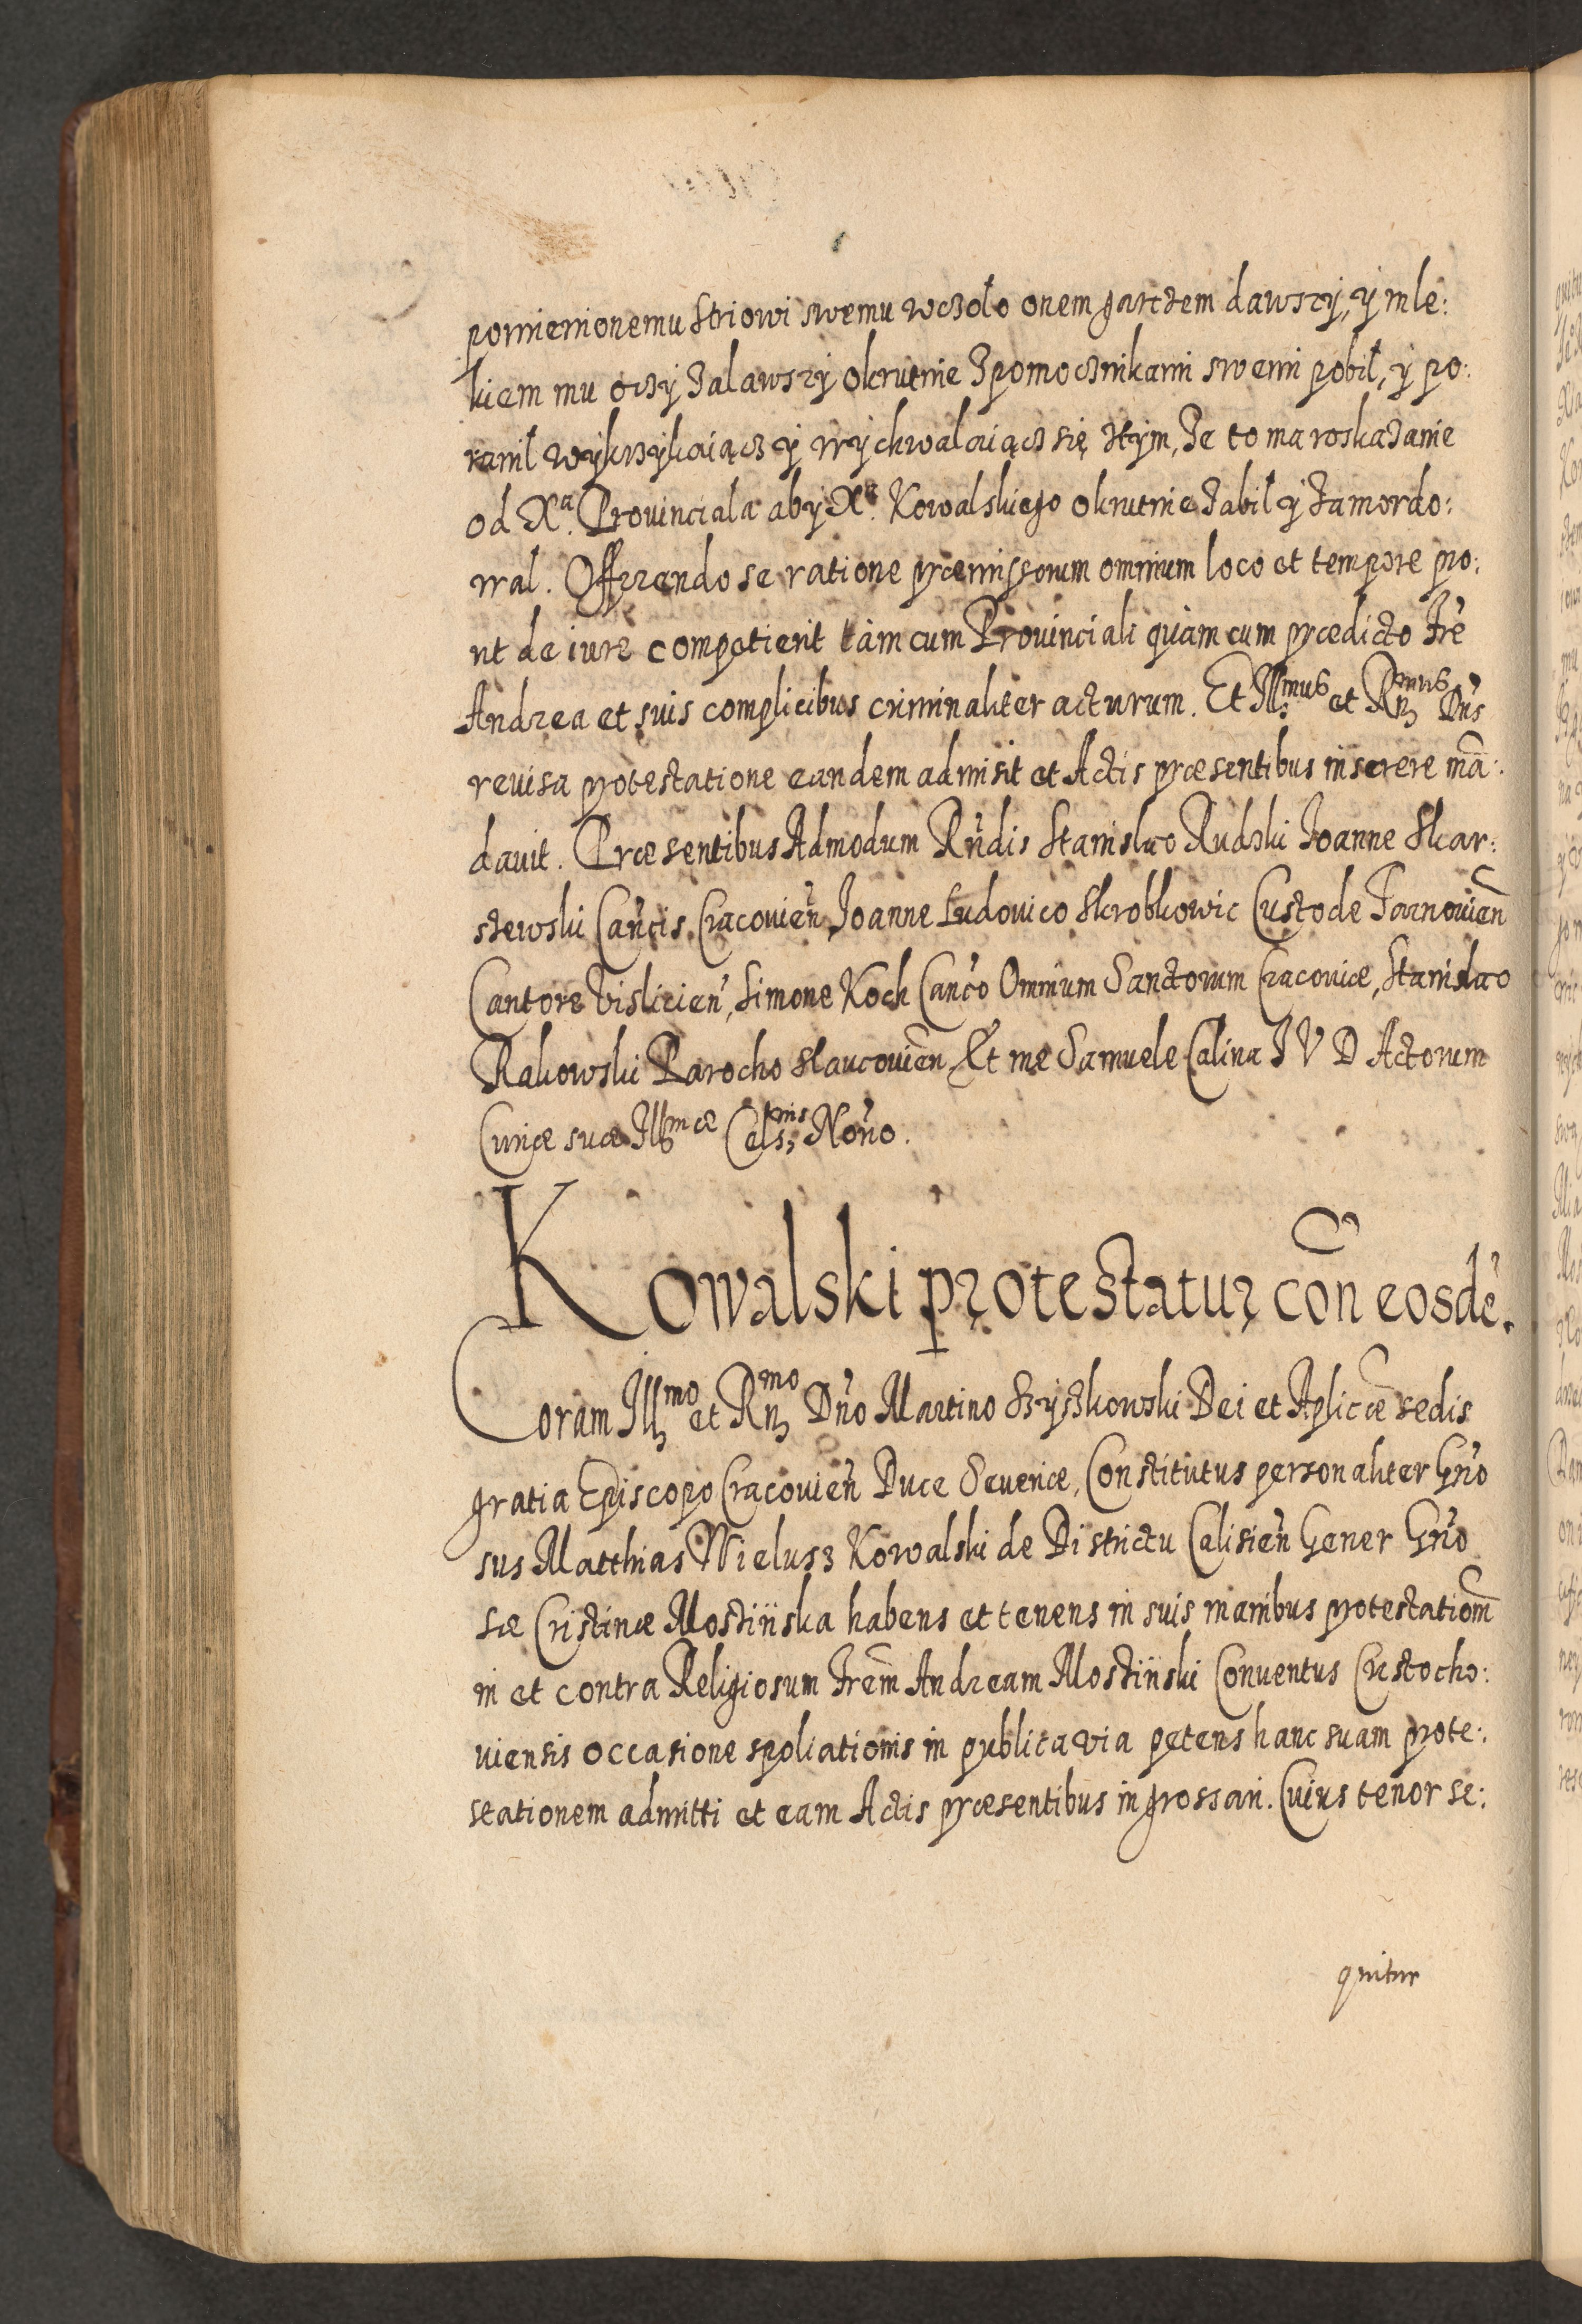 pomienionemu Striowi swemu wczoło onem garczem dawszÿ, ÿ mle:
kiem mu oczÿ zalawszÿ okrutnie z pomocznikami swemi pobił, ÿ po:
ranił wÿkrzÿkaiącz ÿ wÿchwalaiącz się stÿm, że to ma roskazanie
od Xª. Prouinciała abÿ Xª. Kowalskiego okrutnie zabił ÿ zamordo:
wal. Offerendo se ratione præmissorum omnium loco et tempore pro:
ut de iure competierit tàm cum Prouinciali quàm cum prædicto Frẽ
Andrea et suis complicibus criminaliter acturum. Et Illmus et Rnmus Dñs
reuisa protestatione eandem admisit et Actis præsentibus inserere mã:
dauit. Præsentibus Admodum Rñdis Stanislao Rudzki Joanne Skar:
szewski Cañcis Cracouień, Joanne Ludouico Skrobkowic Custode Tarnouień
Cantore Vislicień, Simone Koch Cañco Omnium Sanctorum Cracouiæ, Stanislao
Rakowski Parocho Slaucouień Et me Samuele Calina I V D Actorum
Curiæ suæ Illmæ Celsnis Noño.
Kowalski protestatur coñ eosdẽ.
Coram Illmo et Rnmo Dño Martino Szÿszkowski Dei et Aplicæ sedis
gratia Episcopo Cracouień Duce Seueriæ, Constitutus personaliter Gño
sus Matthias Wielusz Kowalski de Districtu Calisień Gener Gño
sæ Cristinæ Mostiiska habens et tenens in suis manibus protestatiom̃
in et contra Religiosum Frem̃ Andream Mostiiski Conuentus Czestocho:
uiensis occasione spoliationis in publica via petens hanc suam prote:
stationem admitti et eam Actis præsentibus ingrossari. Cuius tenor se:
quitur